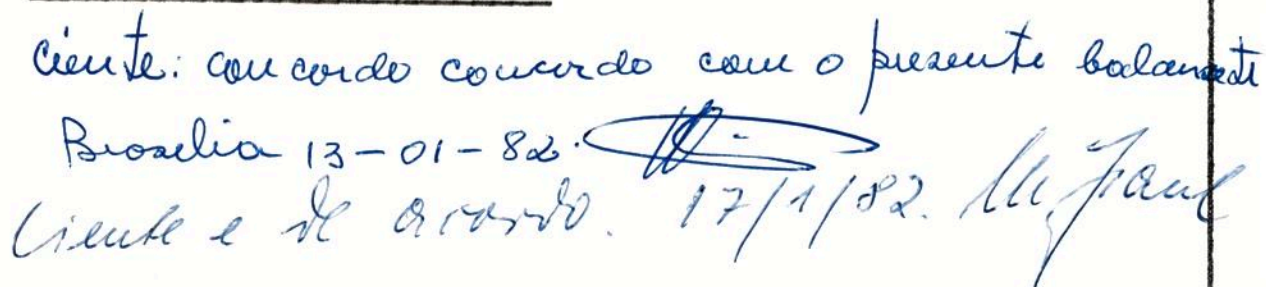 ciente: concordo concordo com o presente balancete
Brasilia 13-01-82.
Ciente e de acordo. 17/1/82.